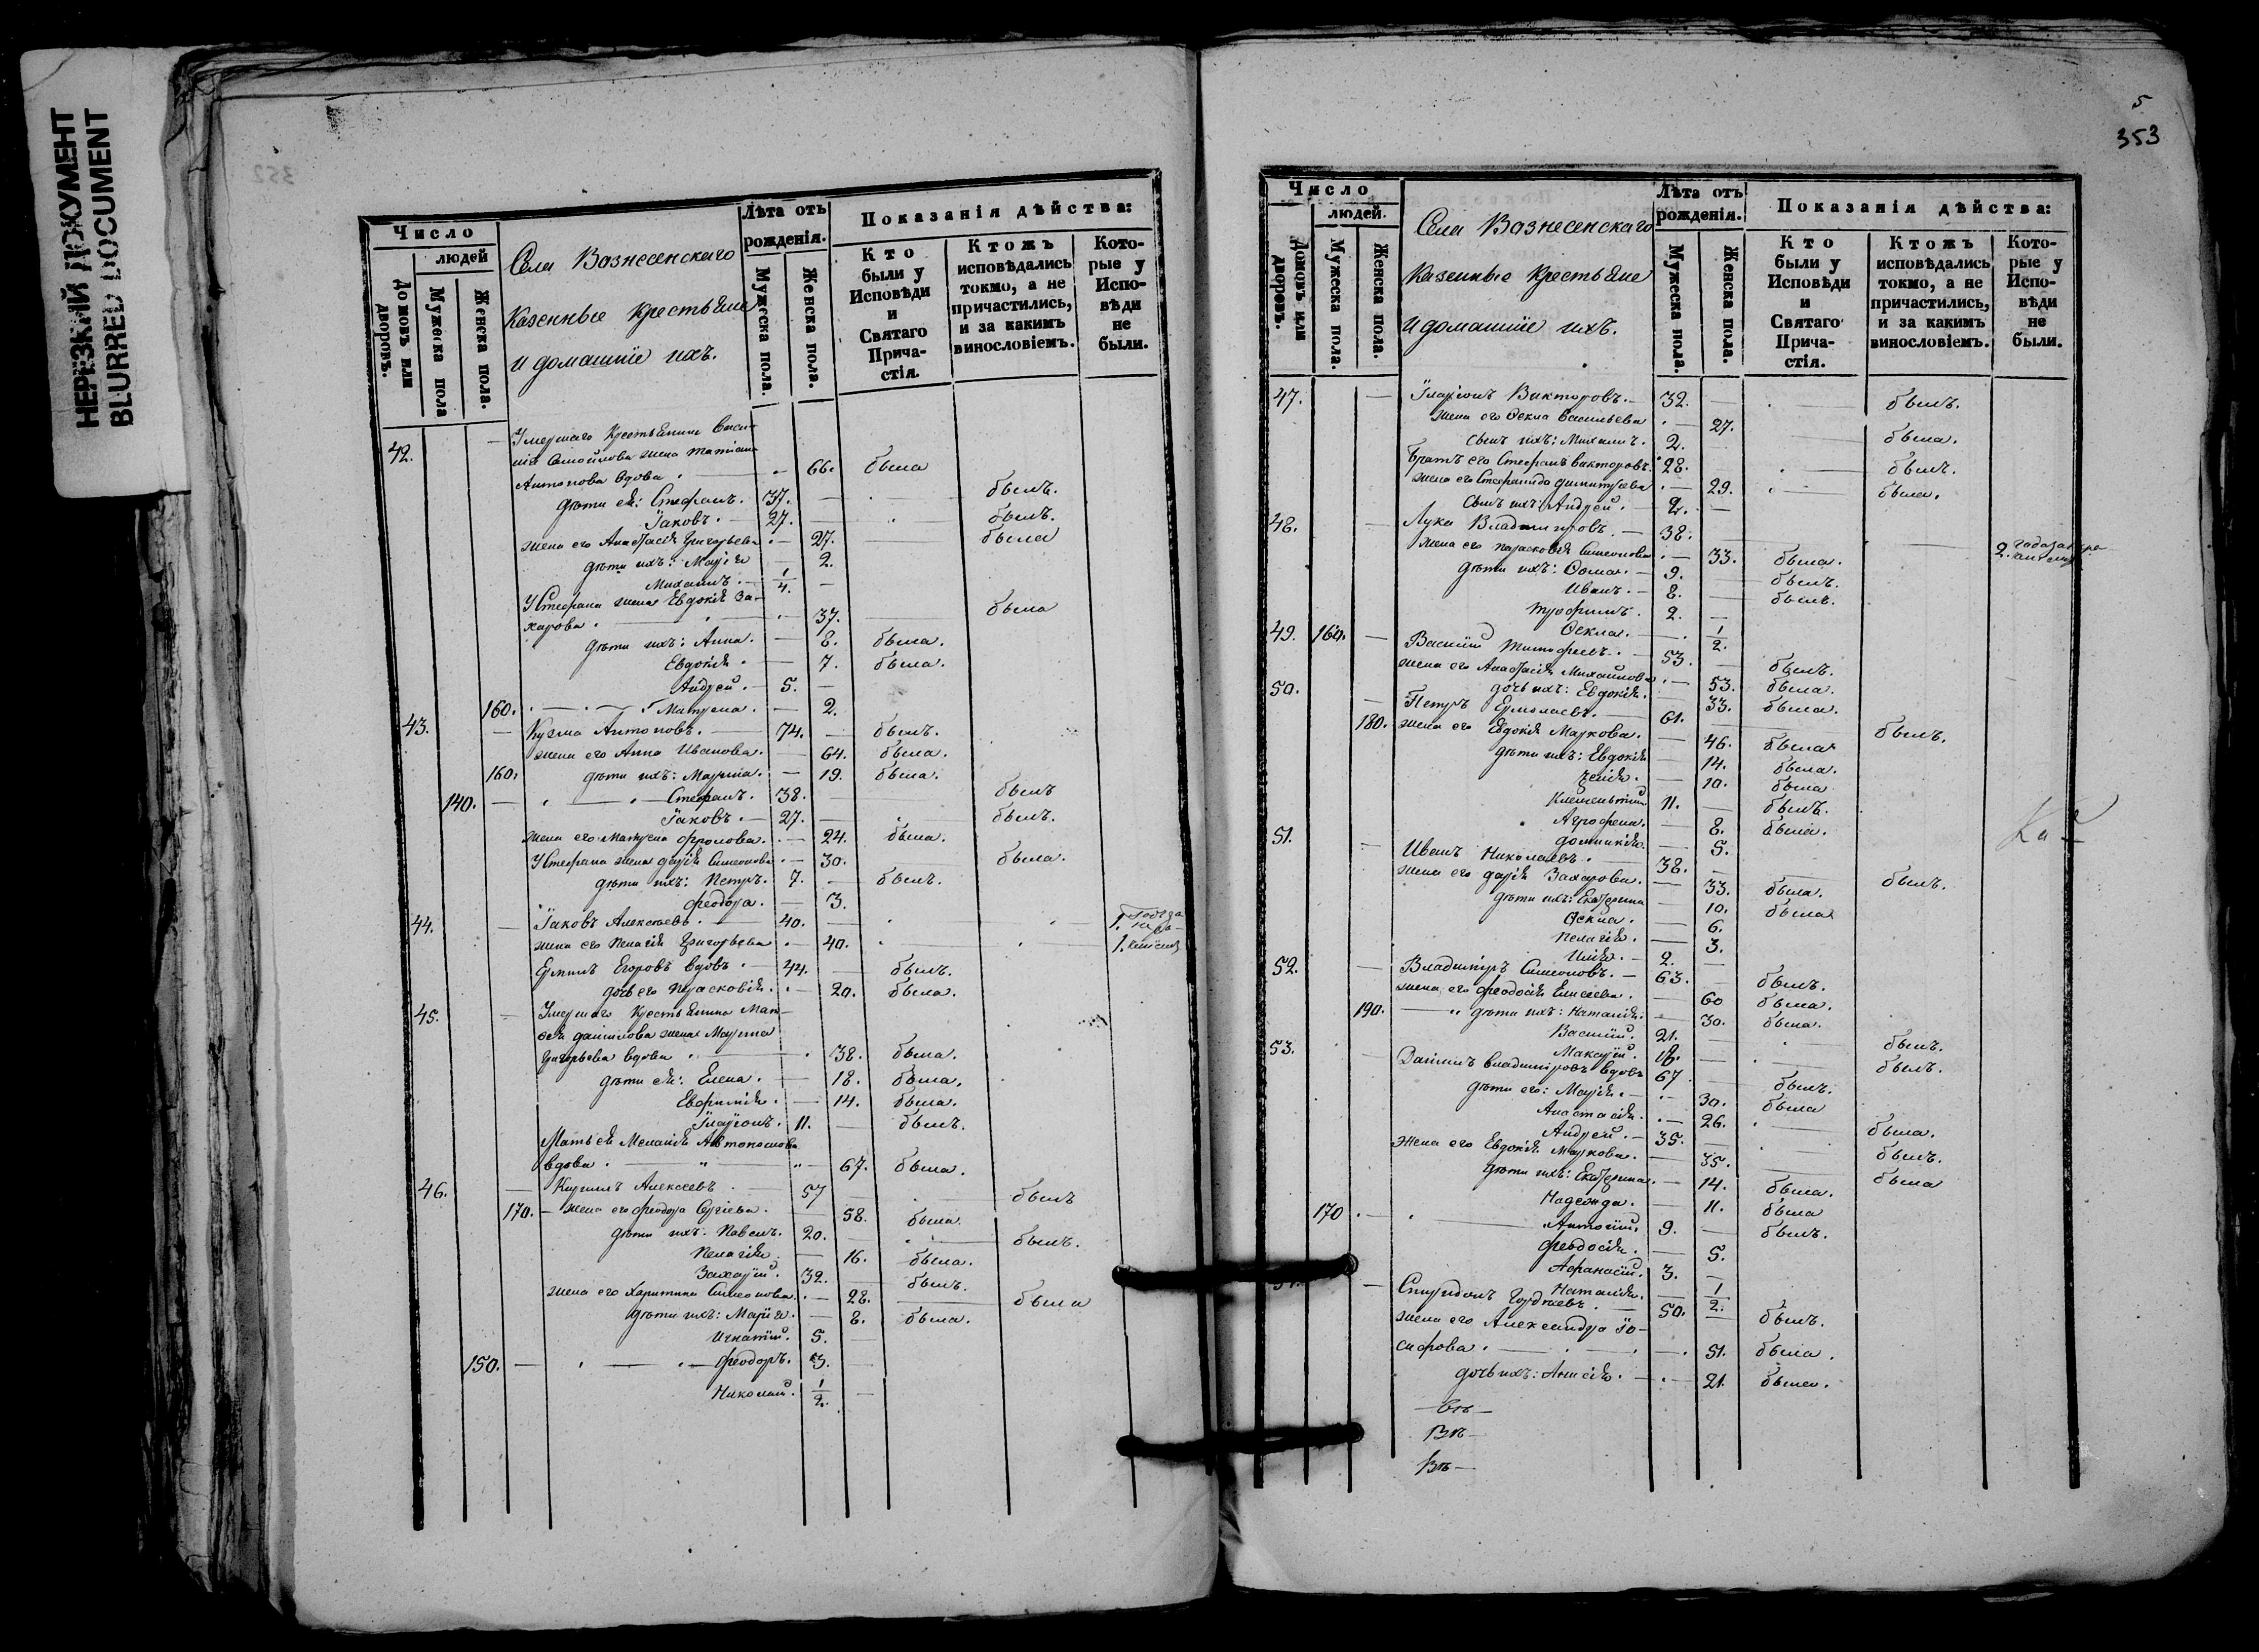 НЕРЕЗКИЙ ДОКУМЕНТ
BLURRED DOCUMENT
Число
людей
Домовъ или дворовъ.
Мужеска пола
Женска пола.
Села Вознесенскаго
Казенные крестьяне
и домашніе ихъ.
Лѣта отъ рожденія.
Мужеска пола.
Женска пола.
Показанія дѣйства:
Кто были у Исповѣди и Святаго Прича-стія.
Ктожъ исповѣдались токмо, а не причастились, и за какимъ винословіемъ.
Кото-рые у Испо-вѣди не были.
42. — Умершаго Крестьянина Васи-
лія Самойлова жена Татіана
Антонова вдова . — 66. была
дѣти ея: Стефанъ. 37. — былъ.
Іаковъ. 27. — былъ.
жена его Анастасія Григорьева — 27. была
дѣти ихъ: Марія — 2.
Михаилъ. 1/4. —
У Стефана жена Евдокія За-
харова . — 37. была
дѣти ихъ: Анна. — 8. была.
Евдокія . — 7. была.
Андрей. 5. —
160. Матрена. — 2.
43. — Кузма Антоновъ. 74. — былъ.
жена его Анна Иванова. — 64. была.
160. дѣти ихъ: Марина. — 19. была.
140. — Стефанъ. 38. — былъ
Іаковъ. 27. — былъ.
жена его Матрена Фролова. — 24. была.
У Стефана жена Дарія Симеонова — 30. была.
дѣти ихъ: Петръ. 7. — былъ.
Феодора. — 3.
44. — Іаковъ Алексѣевъ. 40. — 1.
жена его Пелагія Григорьева — 40. 1.
Ермилъ Егоровъ вдовъ. 44. — былъ.
дочь его Прасковія. — 20. была.
45. — Умершаго Крестьянина Мат-
вѣя Данилова жена Марина
Григорьева вдова . 38. была.
дѣти ея: Елена. — 18. была.
Евфимія. — 14. была.
Іларіонъ. 11. — былъ.
Мать ея Меланія Автономова
вдова . — 67. была.
46. — Кирилъ Алексеевъ 57 — былъ
170. — жена его Феодора Сергіева. 58. была
дѣти ихъ: Павелъ. 20. — былъ.
Пелагія — 16. была.
Захарій. 32. — былъ.
жена его Харитина Симеонова. — 28. была
дѣти ихъ: Марія. — 8. была.
Игнатій. 5. —
150. — Феодоръ. 3. —
Николай. 1/2. —
5
353
Число
людей.
Домовъ или дворовъ.
Мужеска пола.
Женска пола.
Села Вознесенскаго
Казенные крестьяне
и домашніе ихъ.
Лѣта отъ рожденія.
Мужеска пола.
Женска пола.
Показанія дѣйства:
Кто были у Исповѣди и Святаго Прича-стія.
Ктожъ исповѣдались токмо, а не причастились, и за какимъ винословіемъ.
Кото-рые у Испо-вѣди не были.
47. — Іларіонъ Викторовъ. 32. — былъ.
жена его Ѳекла Васильева — 27. была.
сынъ ихъ: Михаилъ. 2.
Братъ его Стефанъ Викторовъ. 28. — былъ.
жена его Стефанида Димитрева — 29. была.
сынъ ихъ: Андрей. 2. —
48. — Лука Владимировъ. 38. — 2.
жена его Параскевія Симеонова — 33. была.
дѣти ихъ: Ѳома. 9. былъ.
Иванъ. 8. — былъ.
Трофимъ. 2. —
Ѳекла. — 1/2.
49. 160. — Василій Тимофеевъ. 53. — былъ.
жена его Анастасія Михайлова — 53. была.
дочь ихъ: Евдокія. 33. была.
50. — Петръ Ермолаевъ. 61. — былъ.
180. жена его Евдокія Маркова. — 46. была
дѣти ихъ: Евдокія — 14. была.
— 10. была
Климентій 11. — былъ.
Агрофена. — 8. была.
Домникія. — 5.
51. — Иванъ Николаевъ. 38. — былъ.
жена его Дарія Захарова. — 33. была.
дѣти ихъ: Екатерина — 10. была
Ѳекла. — 6.
Пелагія. — 3.
Илія. 2. —
52. — Владимиръ Симеоновъ. 63. — былъ.
жена его Феодосія Елисеева. — 60 была.
190. — дѣти ихъ: Наталія. 30. была.
Василій. 21. — былъ.
Макарій. 18. — былъ.
53. — Даніилъ Владимировъ вдовъ 67 — былъ.
дѣти его: Марія. — 30. была
Анастасія. — 26. была.
Андрей. 35. — былъ.
Жена его Евдокія Маркова. — 35. была
дѣти ихъ: Екатерина. — 14. была.
Надежда. — 11. была
170. — Антоній. 9. — былъ.
Феодосія. — 5.
Афанасій. 3. —
Наталія. — 1/2.
— Спиридонъ Гордѣевъ. 50. — былъ.
жена его Александра Іо-
сифова. — 51. была.
дочь ихъ: Анисія. — 21. была.